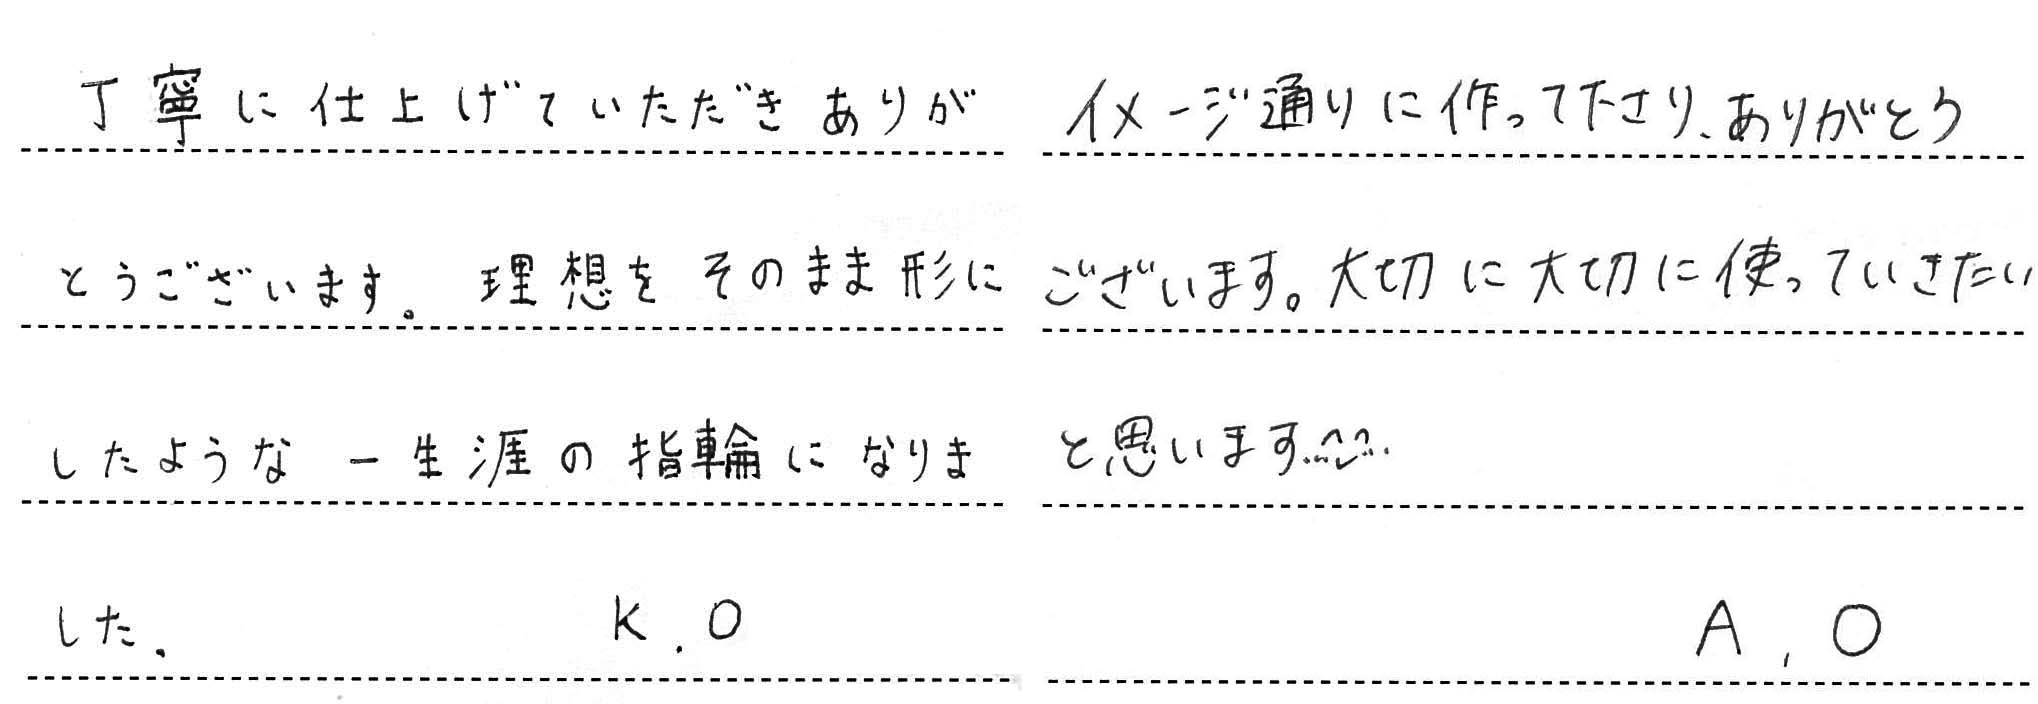 丁寧に仕上げていただきありが
とうございます。理想をそのまま形に
したような一生涯の指輪になりま
した.
K.O
イメージ通りに作って下さり、ありがとう
ございます。大切に大切に使っていきたい
と思います
A,O